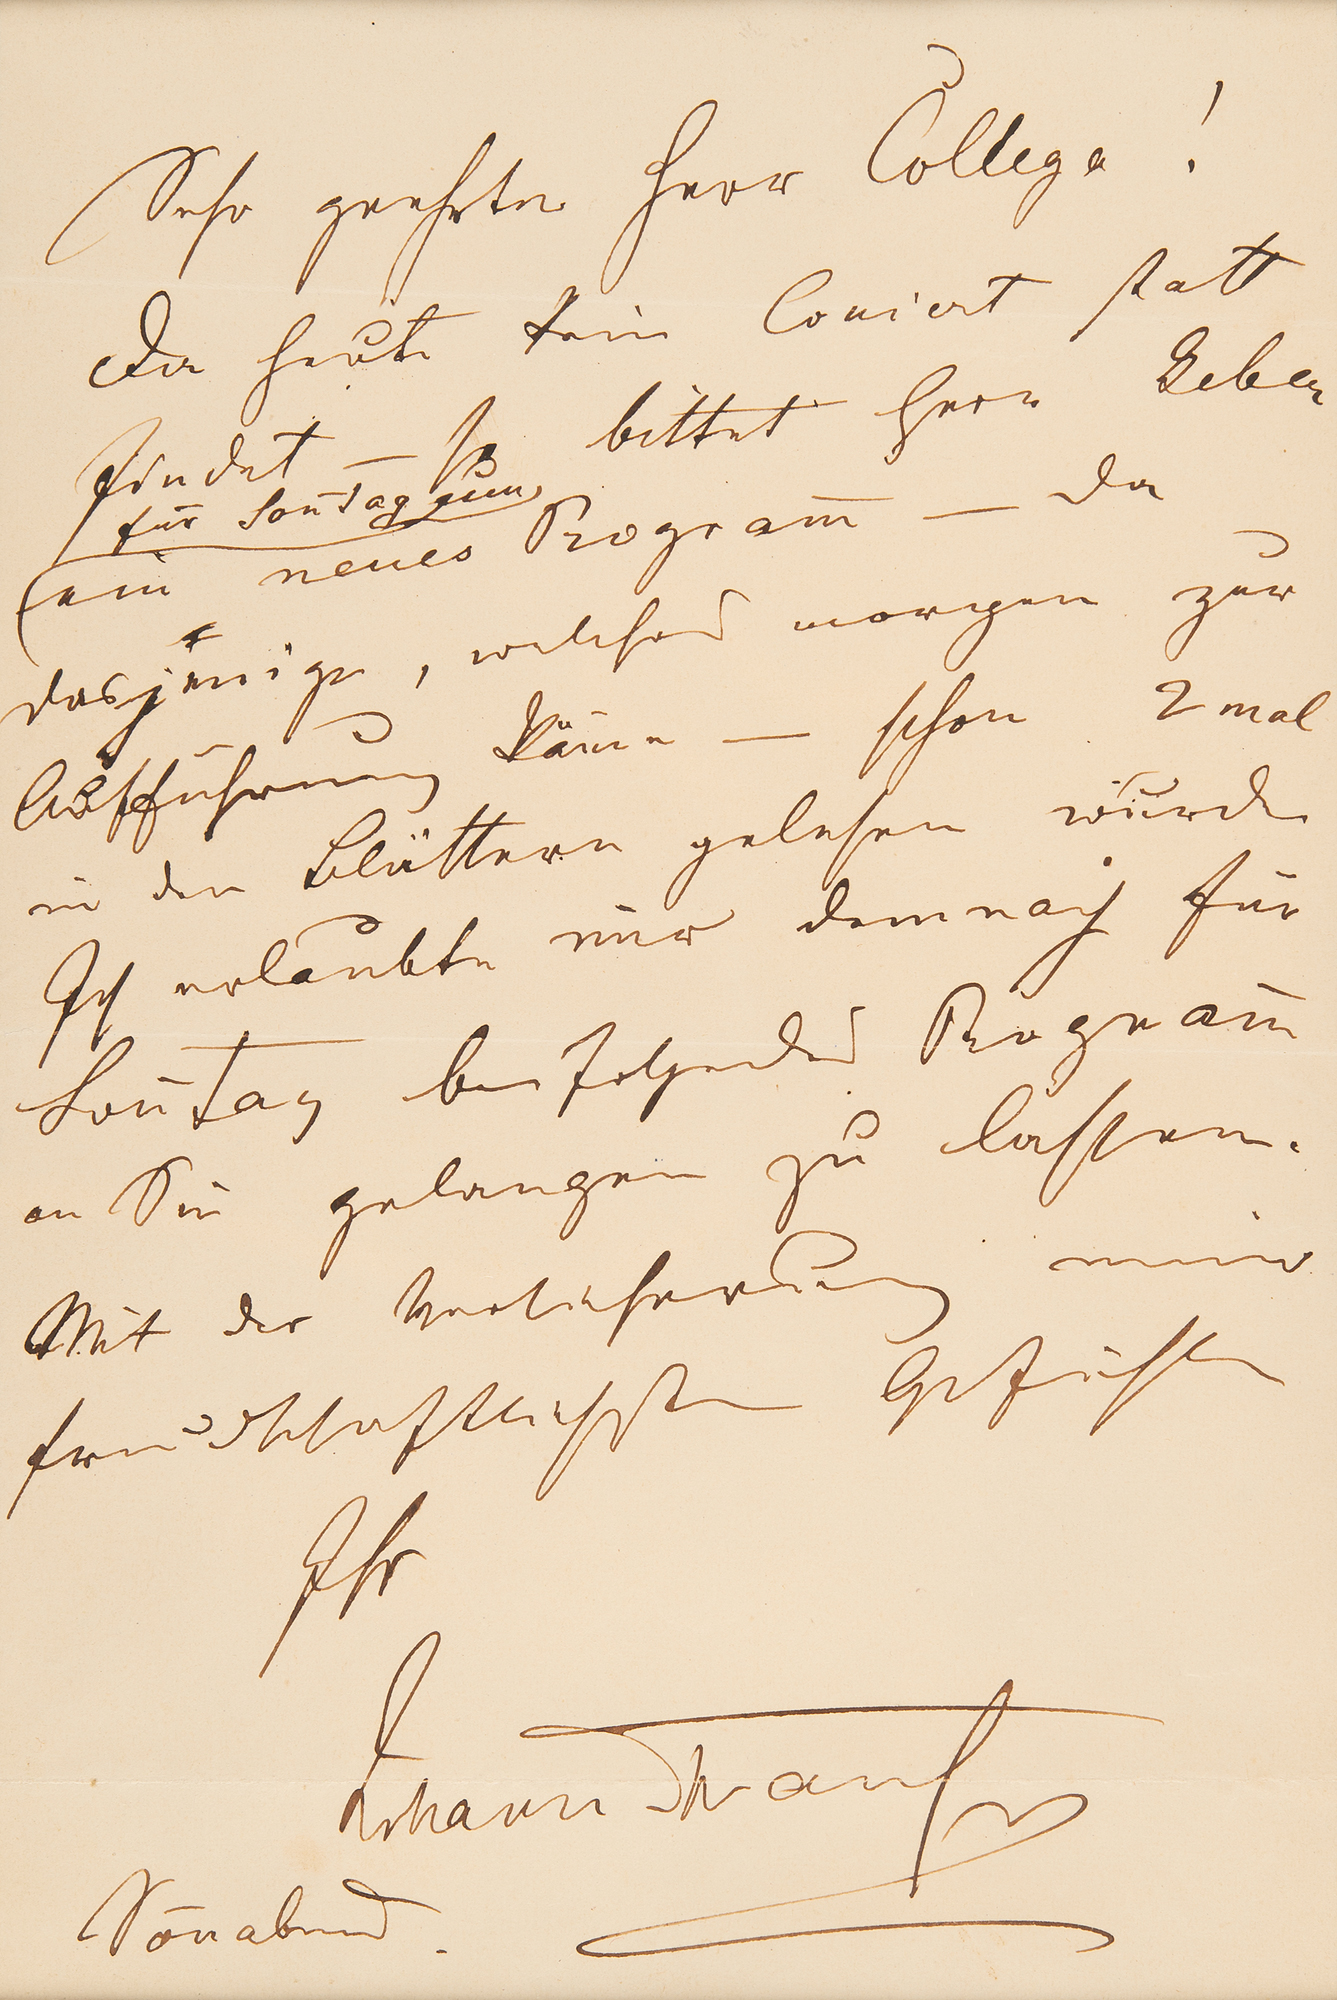 Sehr geehrter Herr College!
Da heute kein Concert statt
findet – so bittet Herr
für Soñtag zum
ein neues Programm̄ – da
dasjenige, welches morgen zur
Aufführung käme – schon 2 mal
in den Blättern gelesen wurde
Ich erlaubte mir demnach für
Soñtag beifolgendes Programm̄
an Sie gelangen zu lassen.
Mit der Versicherung meiner
freundschaftlichsten Gefühle
Ihr
Johann Strauß
Soñabend.